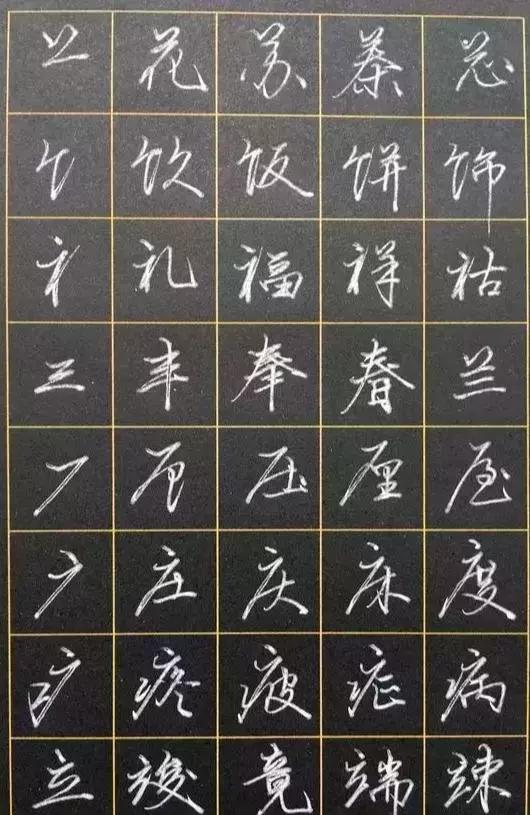 艹 花 苏 恭 芯
饣 饮 饭 饼 饰
礻 礼 福 祥 祜
三 丰 奉 春 兰
厂 压 厘
广 庄 庆 床 度
疒 疼 疲 症 病
立 竣 竟 端 竦